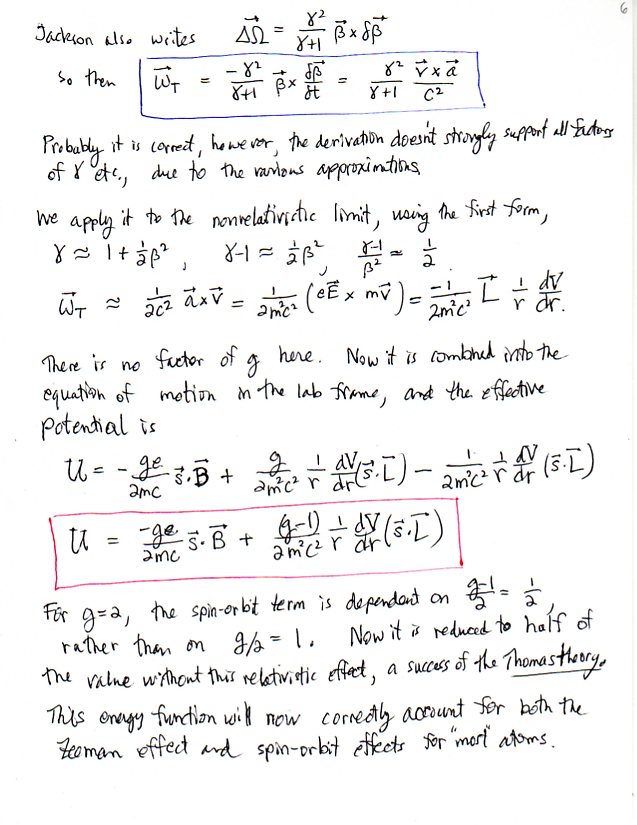 6
Jackson also writes ΔΩ⃗ = γ²/(γ+1) β⃗ × δβ⃗
so then ω⃗_T = -γ²/(γ+1) β⃗ × δβ⃗/δt = γ²/(γ+1) v⃗ × a⃗/c²
Probably it is correct, however, the derivation doesn't strongly support all factors
of γ etc., due to the various approximations.
We apply it to the nonrelativistic limit, using the first form,
γ ≈ 1 + ½β², γ-1 ≈ ½β², (γ-1)/β² ≃ 1/2.
ω⃗_T ≈ 1/(2c²) a⃗ × v⃗ = 1/(2m²c²) (eE⃗ × mv⃗) = -1/(2m²c²) L⃗ 1/r dV/dr.
There is no factor of g here. Now it is combined into the
equation of motion in the lab frame, and the effective
potential is
U = - ge/(2mc) s⃗·B⃗ + g/(2m²c²) 1/r dV/dr (s⃗·L⃗) - 1/(2m²c²) 1/r dV/dr (s⃗·L⃗)
U = -ge/(2mc) s⃗·B⃗ + (g-1)/(2m²c²) 1/r dV/dr (s⃗·L⃗)
For g=2, the spin-orbit term is dependent on (g-1)/2 = 1/2,
rather than on g/2 = 1. Now it is reduced to half of
the value without this relativistic effect, a success of the Thomas theory.
This energy function will now correctly account for both the
Zeeman effect and spin-orbit effects for "most" atoms.